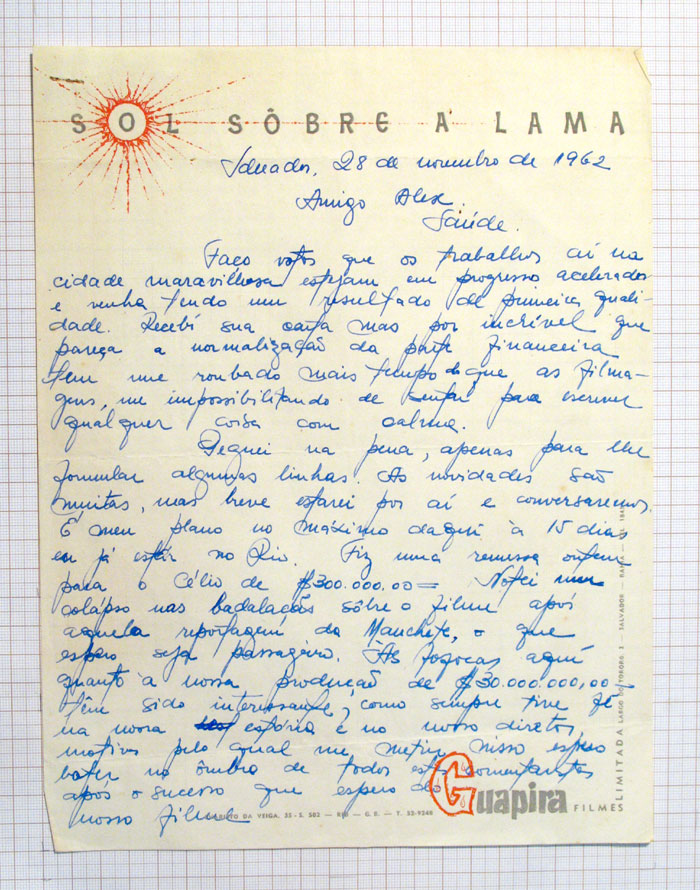 SOL SÔBRE A LAMA
Salvador, 28 de novembro de 1962
Amigo Alex.
Saúde.
Faço votos que os trabalhos aí na
cidade maravilhosa estejam em progresso acelerados
e venha tendo um resultado de primeira quali-
dade. Recebí sua carta mas por incrível que
pareça a normalização da parte financeira
tem me roubado mais tempo do que as filma-
gens, me impossibilitando de sentar para escrever
qualquer coisa com calma.
Peguei na pena, apenas para lhe
formular algumas linhas. As novidades são
muitas, mas breve estarei por aí e conversaremos.
É meu plano no máximo daqui à 15 dias
eu já estar no Rio. Fiz uma remessa ontem
para o Célio de $300.000.00= Notei um
colápso nas badalações sôbre o filme após
aquela reportagem da Manchete, o que
espero seja passageiro. As fofocas aqui
quanto à nossa produção de $30.000.000,00=
têm sido interessante, como sempre tive fé
na nossa estória e no nosso diretor
motivo pelo qual me meti nisso espero
bater no ômbro de todos estes comentaristas
após o sucesso que espero do
nosso filme
Guapira FILMES LIMITADA
LARGO DO TOROR 2 SALVADOR — BAHIA —
DA VEIGA, 35-S. 502 — RIO — G. B. — T. 52-9240